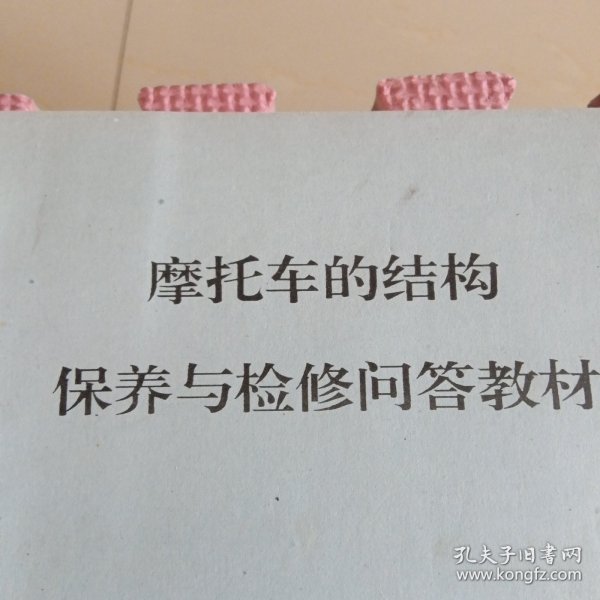 摩托车的结构
保养与检修问答教材
孔夫子旧書网
www.kongfz.com